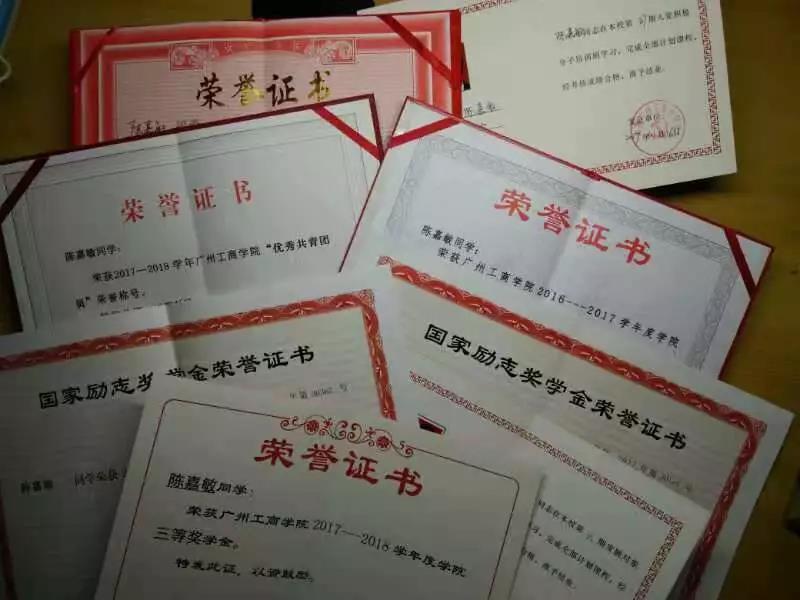 荣誉证书
陈嘉敏
陈嘉敏同志在本校第
期入党积极
分子培训班学习，完成全部计划课程，
经考核成绩合格，准予结业。
陈嘉敏
荣誉证书
陈嘉敏同学：
荣获2017-2018学年广州工商学院“优秀共青团
员”荣誉称号。
荣誉证书
陈嘉敏同学：
荣获广州工商学院2016---2017学年度学院
国家励志奖学金荣誉证书
同学荣获
国家励志奖学金荣誉证书
荣誉证书
陈嘉敏同学：
荣获广州工商学院2017---2018学年度学院
三等奖学金。
特发此证，以资鼓励。
同志在本校第
期发展对象
习，完成全部计划课程，经
合格，准予结业。